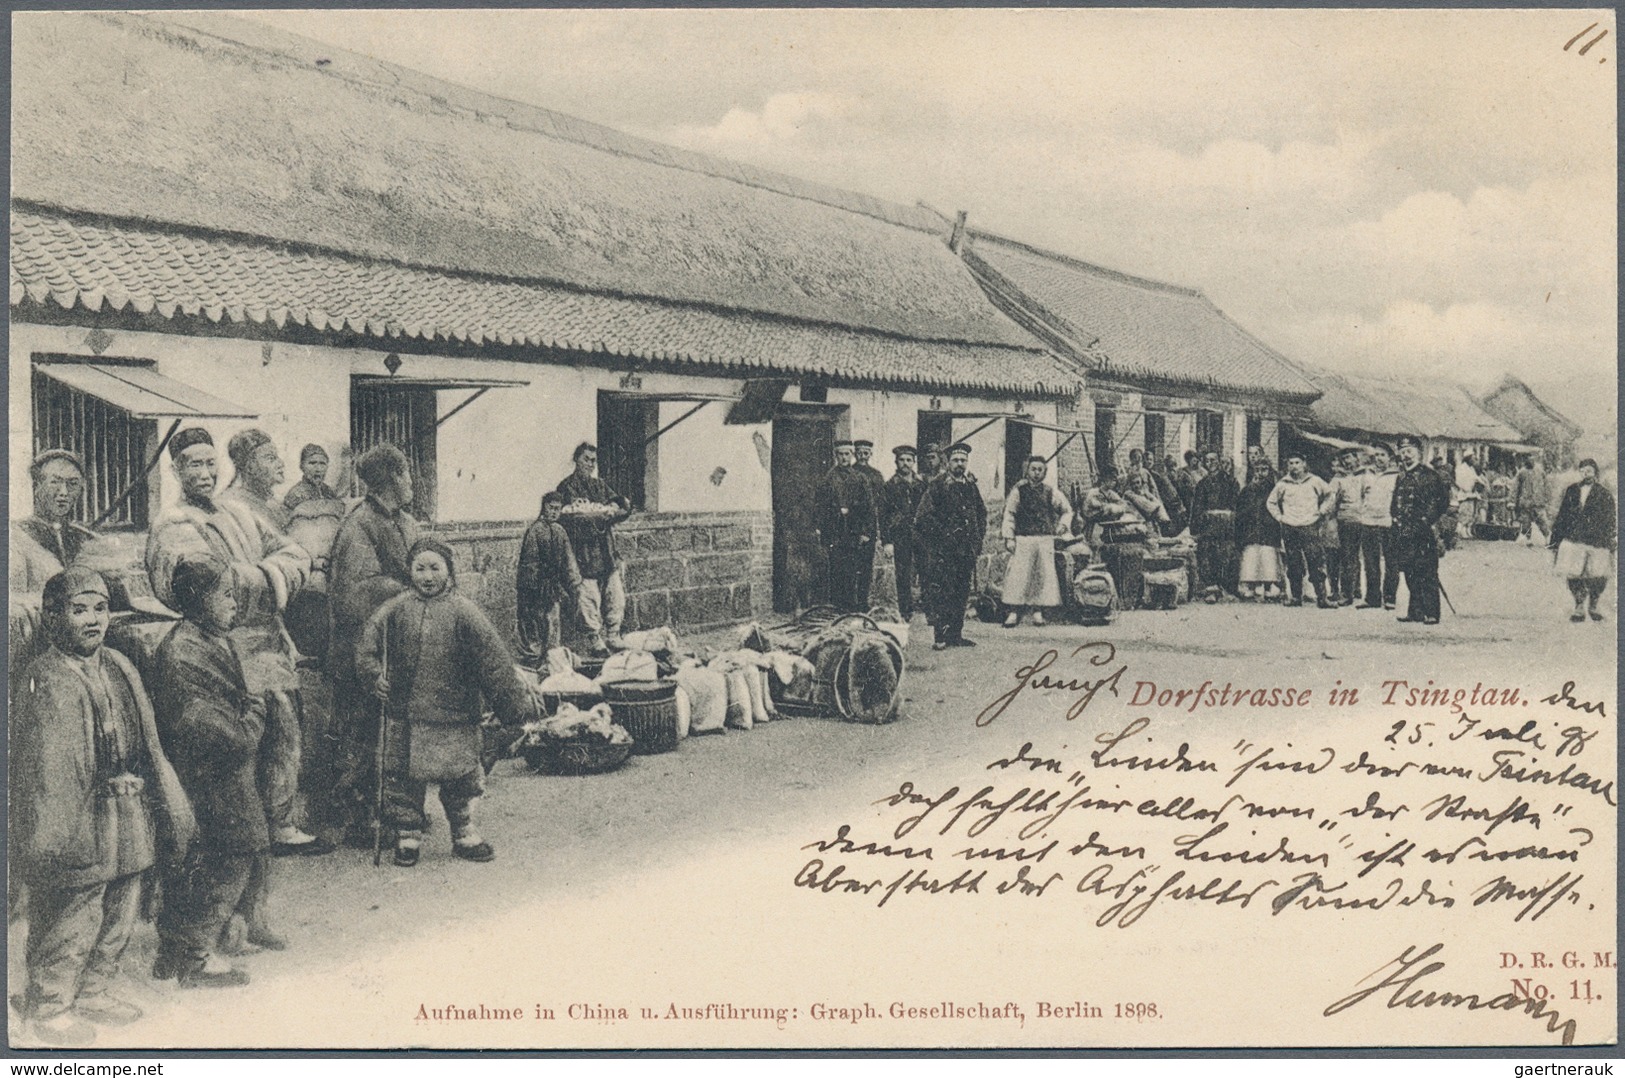 11.
Haupt Dorfstrasse in Tsingtau. den
25. Juli 98
die „Linden" sind dies von Tsintau
doch fehlt hier alles von „der Straße"
denn mit den „Linden" ist es
Aber statt des Asphalts Sand die Masse.
D. R. G. M.
No. 11.
Humann
Aufnahme in China u. Ausführung: Graph. Gesellschaft, Berlin 1898.
delcampe.net
gaertnerauk